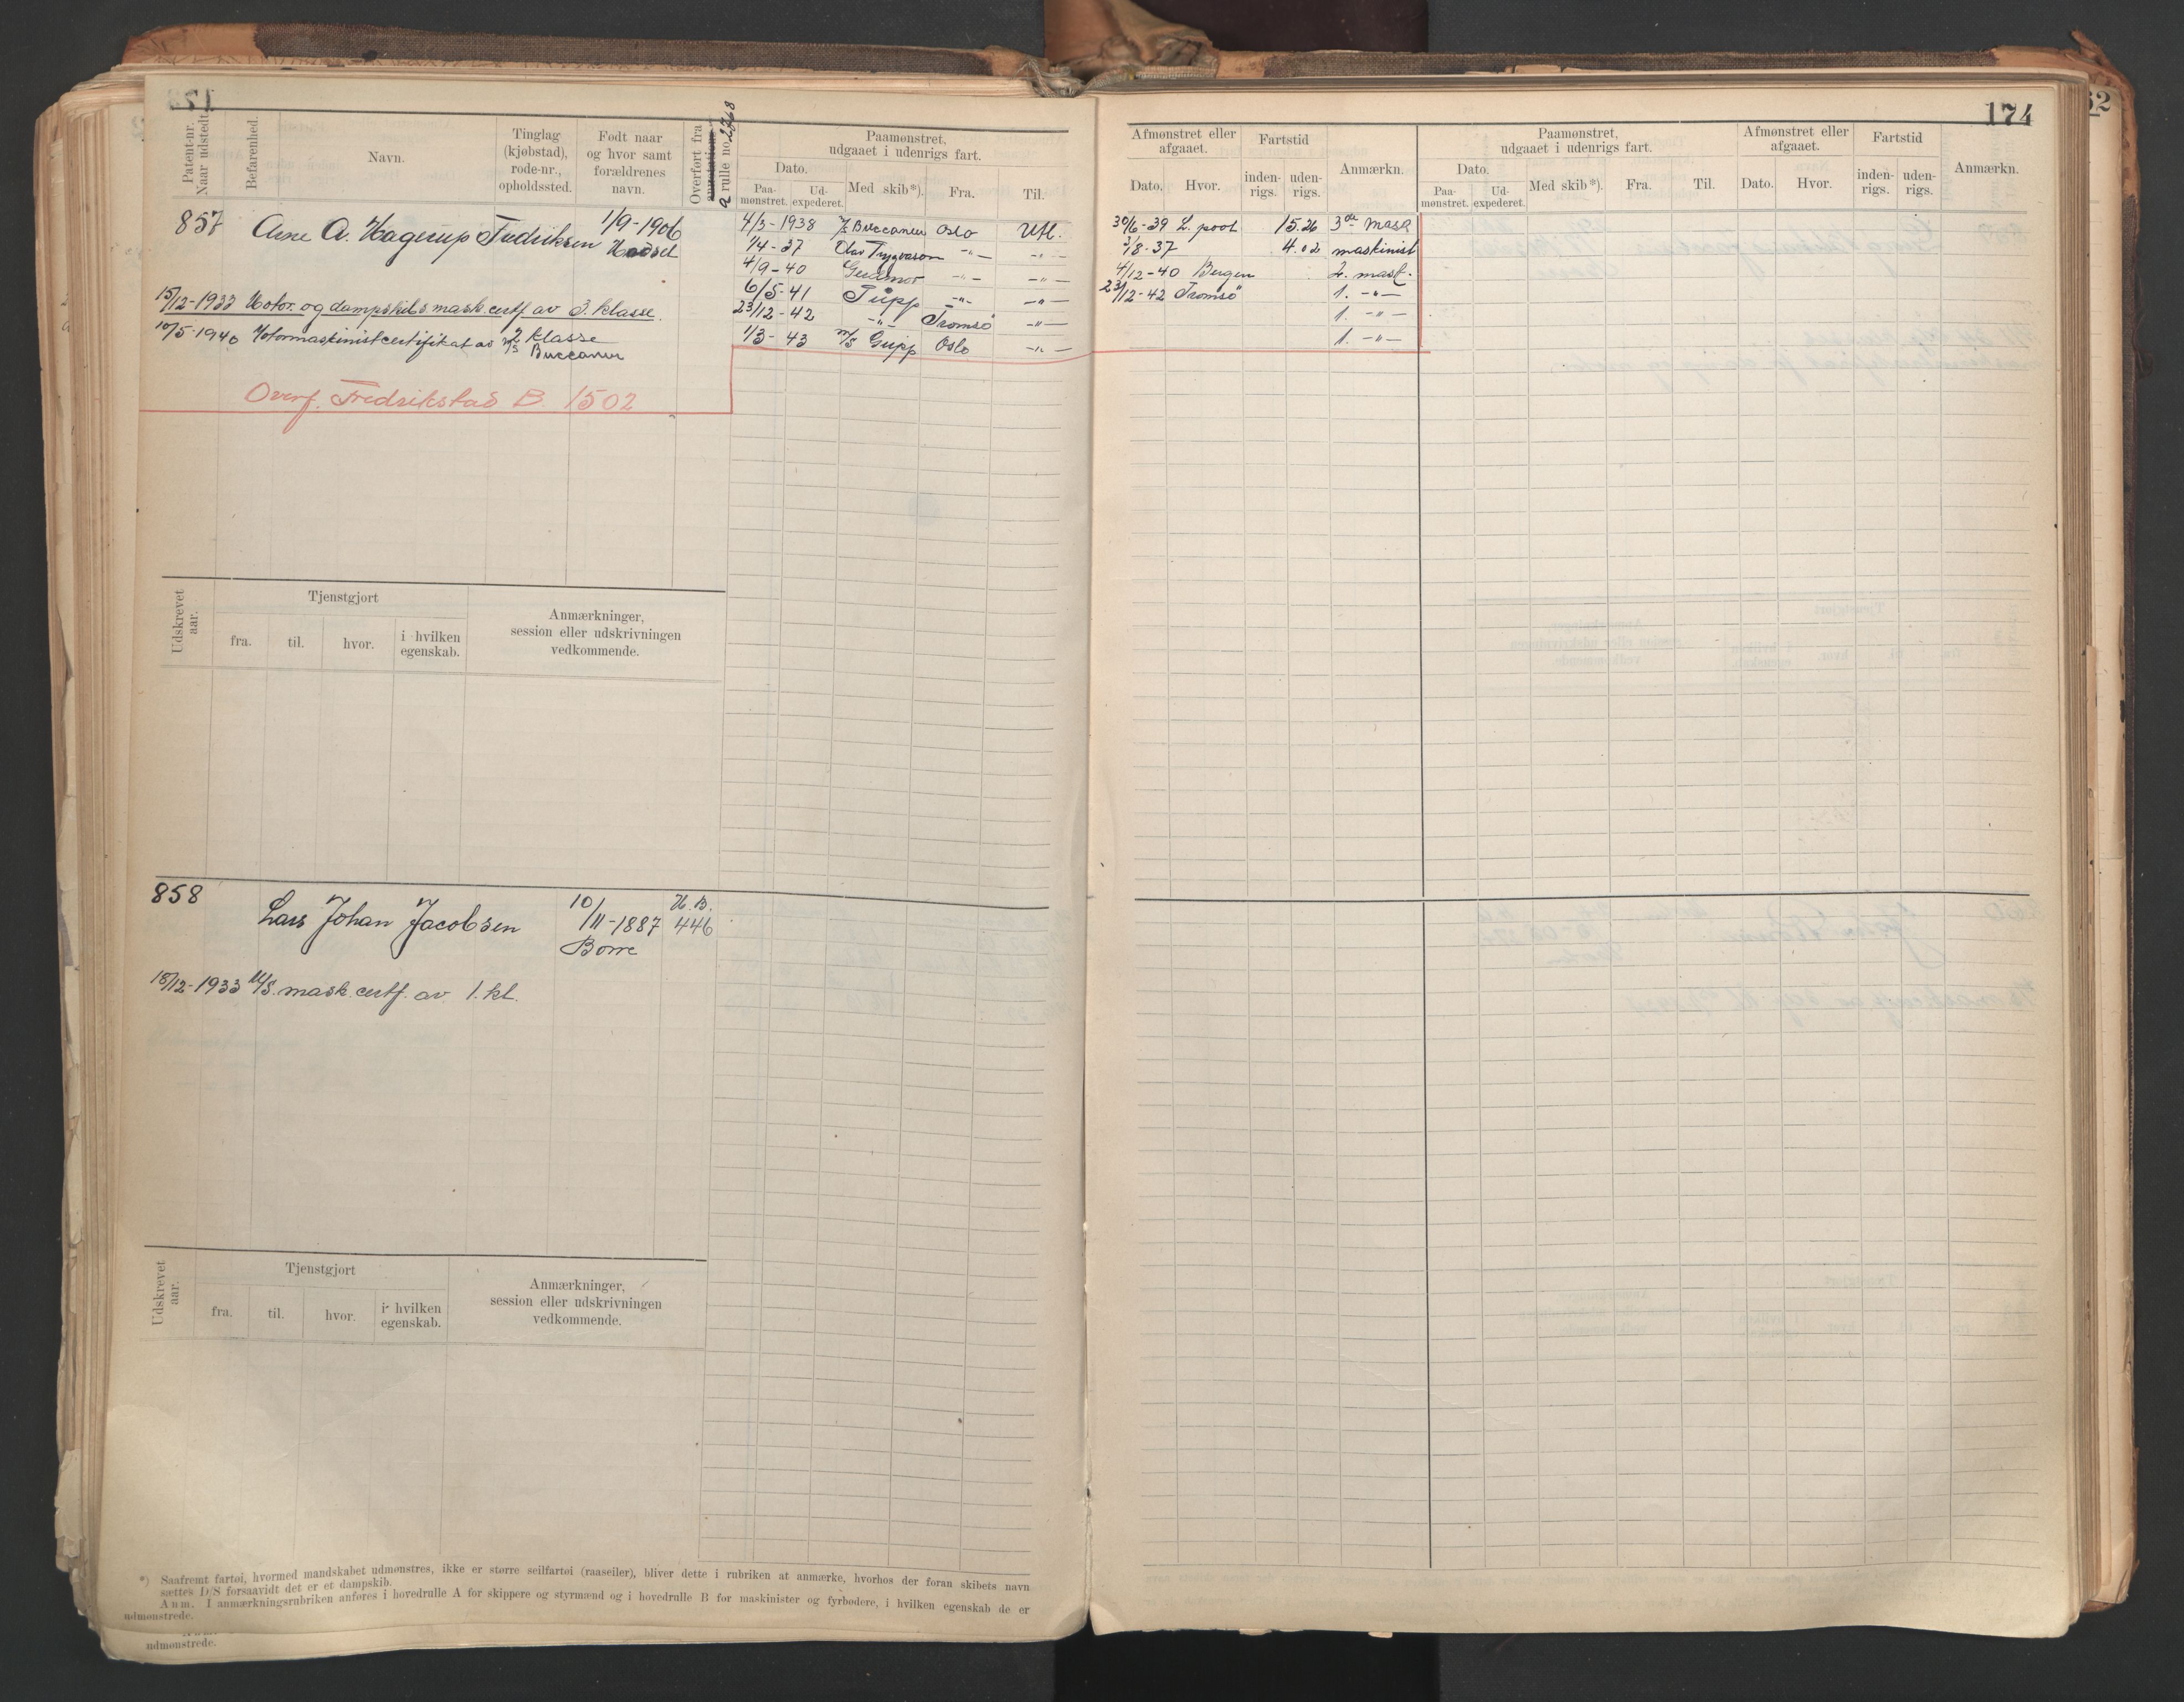 174
Patent-nr. Naar udstedt.
Befarenhed.
Navn.
Tinglag (kjøbstad), rode-nr., opholdssted.
Født naar og hvor samt forældrenes navn.
Overført fra
a rulle no. 2768
Paamønstret, udgaaet i udenrigs fart.
Dato.
Paa-mønstret.
Ud-expederet.
Med skib*).
Fra.
Til.
Afmønstret eller afgaaet.
Dato.
Hvor.
Fartstid
inden-rigs.
uden-rigs.
Anmærkn.
Paamønstret, udgaaet i udenrigs fart.
Dato.
Paa-mønstret.
Ud-expederet.
Med skib*).
Fra.
Til.
Afmønstret eller afgaaet.
Dato.
Hvor.
Fartstid
inden-rigs.
uden-rigs.
Anmærkn.
857 Arne A. Hagerup Fredriksen 1/9-1906
4/3-1938 Buccaneer Oslo Utl. 30/6-39 L.pool 15.26 3de mask
1/4-37 Olav Trygvason -"- -"- 3/8-37 4.02 maskinist
4/9-40 -"- -"- 4/12-40 Bergen 2. mask.
6/5-41 -"- -"- 23/12-42 Tromsö 1. -"-
23/12-42 -"- Tromsö -"- 1. -"-
1/3-43 M/S Oslo -"- 1. -"-
15/12-1933 Motor. og dampskibs mask. certf av 3. klasse.
10/5-1940 Motormaskinistcertifikat av 2 klasse
M/S Buccaneer
Overf. Fredrikstad B 1502
Udskrevet aar.
Tjenstgjort
fra.
til.
hvor.
i hvilken egenskab.
Anmærkninger, session eller udskrivningen vedkommende.
858 Lars Johan Jacobsen 10/11-1887 H.B. 446
Borre
18/12-1933 M/S. mask. certf. av 1. kl.
Udskrevet aar.
Tjenstgjort
fra.
til.
hvor.
i hvilken egenskab.
Anmærkninger, session eller udskrivningen vedkommende.
*) Saafremt fartøi, hvormed mandskabet udmønstres, ikke er større seilfartøi (raaseiler), bliver dette i rubriken at anmærke, hvorhos der foran skibets navn
sættes D/S forsaavidt det er et dampskib.
Anm. I anmærkningsrubriken anføres i hovedrulle A for skippere og styrmænd og i hovedrulle B for maskinister og fyrbødere, i hvilken egenskab de er
udmønstrede.
udmønstrede.